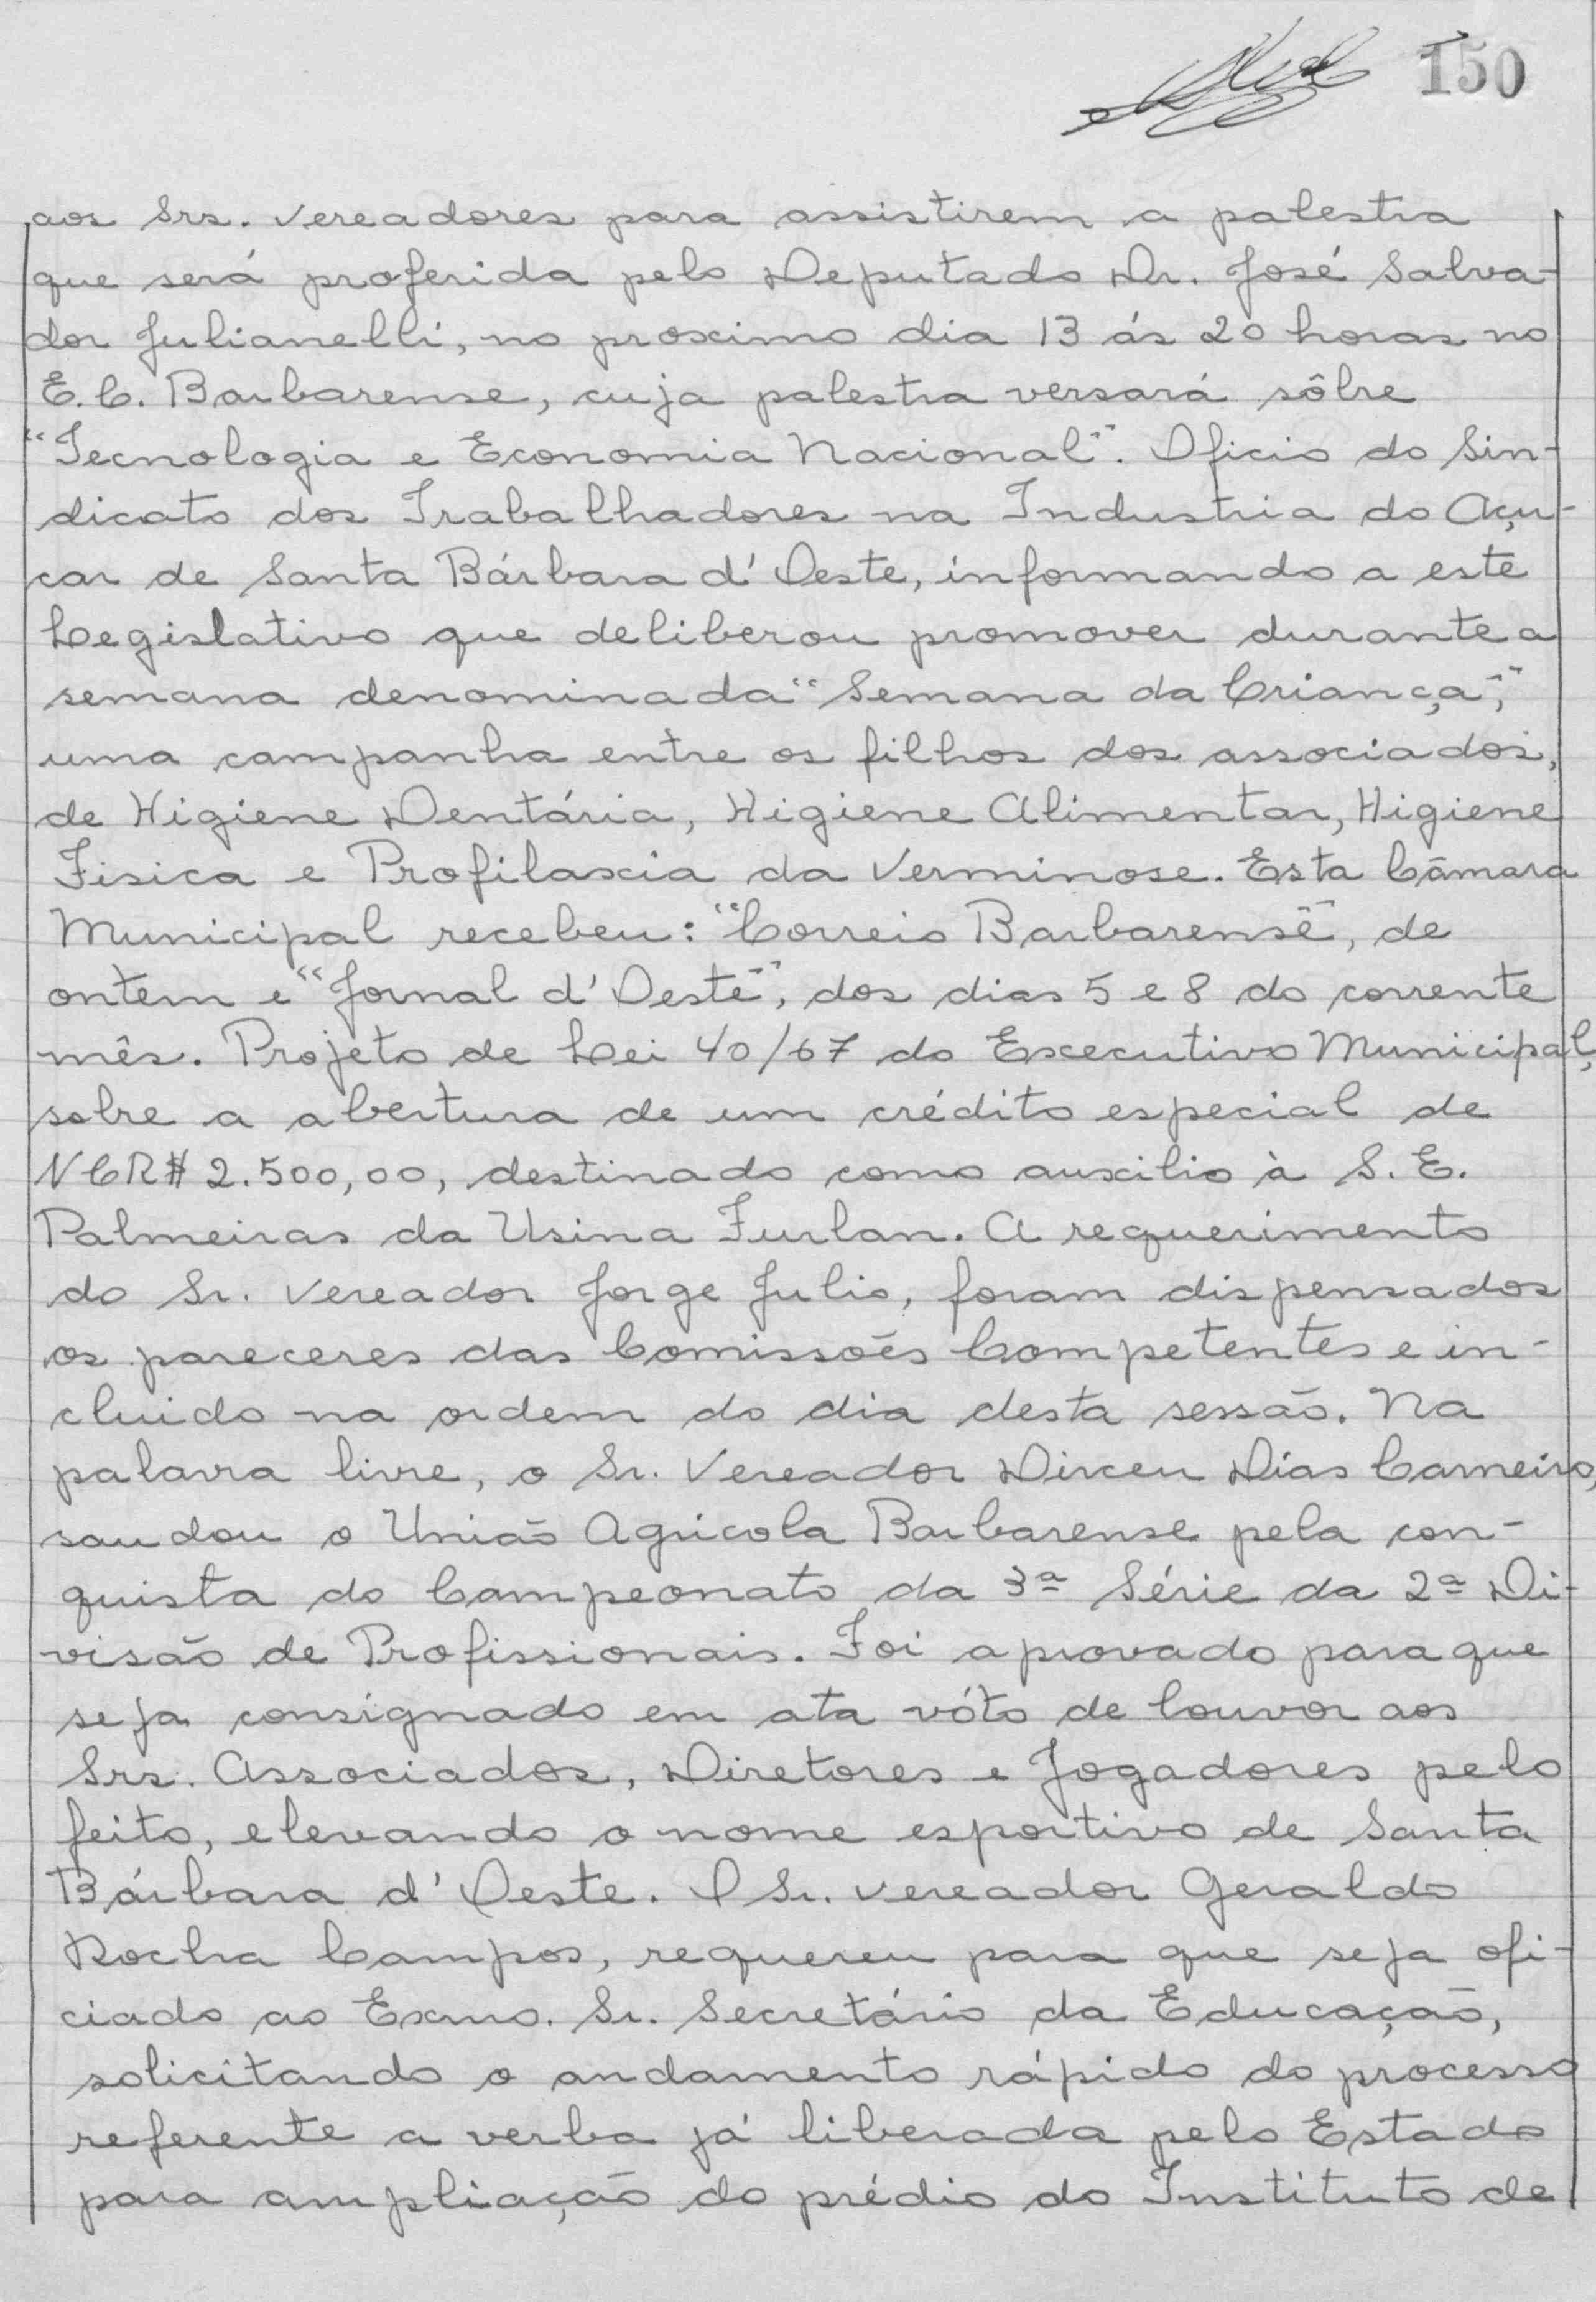 150
aos Srs. vereadores para assistirem a palestra
que será proferida pelo Deputado Dr. José Salva-
dor Julianelli, no proximo dia 13 ás 20 horas no
E.C. Barbarense, cuja palestra versará sôbre
"Tecnologia e Economia Nacional". Oficio do Sin-
dicato dos Trabalhadores na Industria do Açu-
car de Santa Bárbara d'Oeste, informando a este
Legislativo que deliberou promover durante a
semana denominada "Semana da Criança",
uma campanha entre os filhos dos associados,
de Higiene Dentária, Higiene Alimentar, Higiene
Fisica e Profilaxia da Verminose. Esta Câmara
Municipal recebeu: "Correio Barbarense", de
ontem e "Jornal d'Oeste", dos dias 5 e 8 do corrente
mês. Projeto de Lei 40/67 do Executivo Municipal,
sobre a abertura de um crédito especial de
NCR$ 2.500,00, destinado como auxilio à S. E.
Palmeiras da Usina Furlan. A requerimento
do Sr. vereador Jorge Julio, foram dispensados
os pareceres das Comissões Competentes e in-
cluido na ordem do dia desta sessão. Na
palavra livre, o Sr. Vereador Dirceu Dias Carneiro,
saudou o União Agricola Barbarense pela con-
quista do Campeonato da 3ª Série da 2ª Di-
visão de Profissionais. Foi aprovado para que
seja consignado em ata vóto de louvor aos
Srs. Associados, Diretores e Jogadores pelo
feito, elevando o nome esportivo de Santa
Bárbara d'Oeste. O Sr. vereador Geraldo
Rocha Campos, requereu para que seja ofi-
ciado ao Exmo. Sr. Secretário da Educação,
solicitando o andamento rápido do processo
referente a verba já liberada pelo Estado
para ampliação do prédio do Instituto de